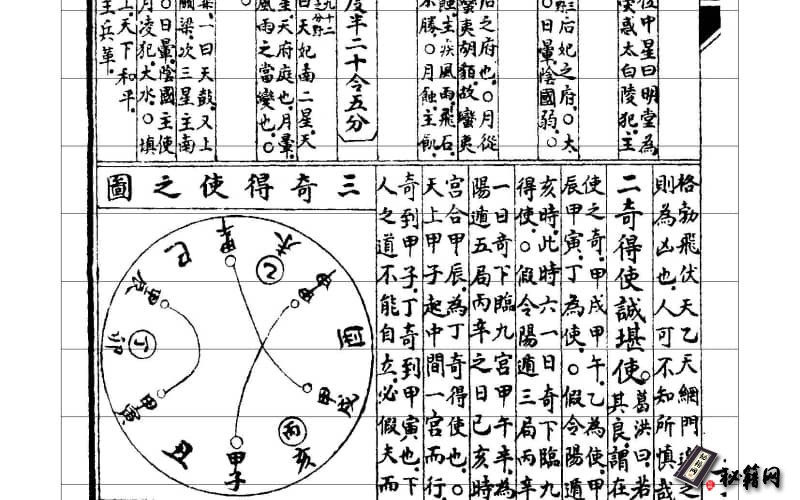 後中星曰明堂為
惑太白陵犯主
三后妃之府。○太
○日暈陰國弱。○
后之府也。○月從
蠻夷胡貊故蠻夷
蝕主疾風雨飛石
不勝。○月蝕主飢
度半二十令五分
九十二
之分野
曰天妃南二星天
主天府庭也月暈
風雨之當變也。○
梁一曰天鼓又上
國梁次三星主南
○日暈陰國主使
月凌犯大水。○填
上天下和平。
主兵革。
格勃飛伏天乙天網門迫之
則為凶也人可不知所慎哉
二奇得使誠堪使。葛洪曰若
其良謂在
使之奇甲戌甲午乙為使甲
辰甲寅丁為使。○假令陽遁
亥時此時六一日奇下臨九
得使。○假令陽遁三局丙辛
一日奇下臨九宮甲午辛為
陽遁五局丙辛之日己亥時
宮合甲辰為丁奇得使也。○
天上甲子起中間一宮而行
奇到甲子丁奇到甲寅也下
人之道不能自立必假夫而
三奇得使之圖
巳
甲午
未
乙
甲申
酉
甲戌
亥
丙
甲子
丑
甲寅
卯
丁
甲辰
秘籍网